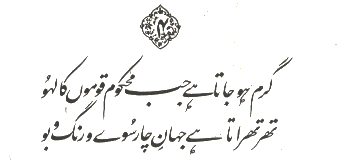 ۴
گرم ہو جاتا ہے جب محکوم قوموں کا لہُو
تھرتھراتا ہے جہانِ چار سُوے و رنگ و بو